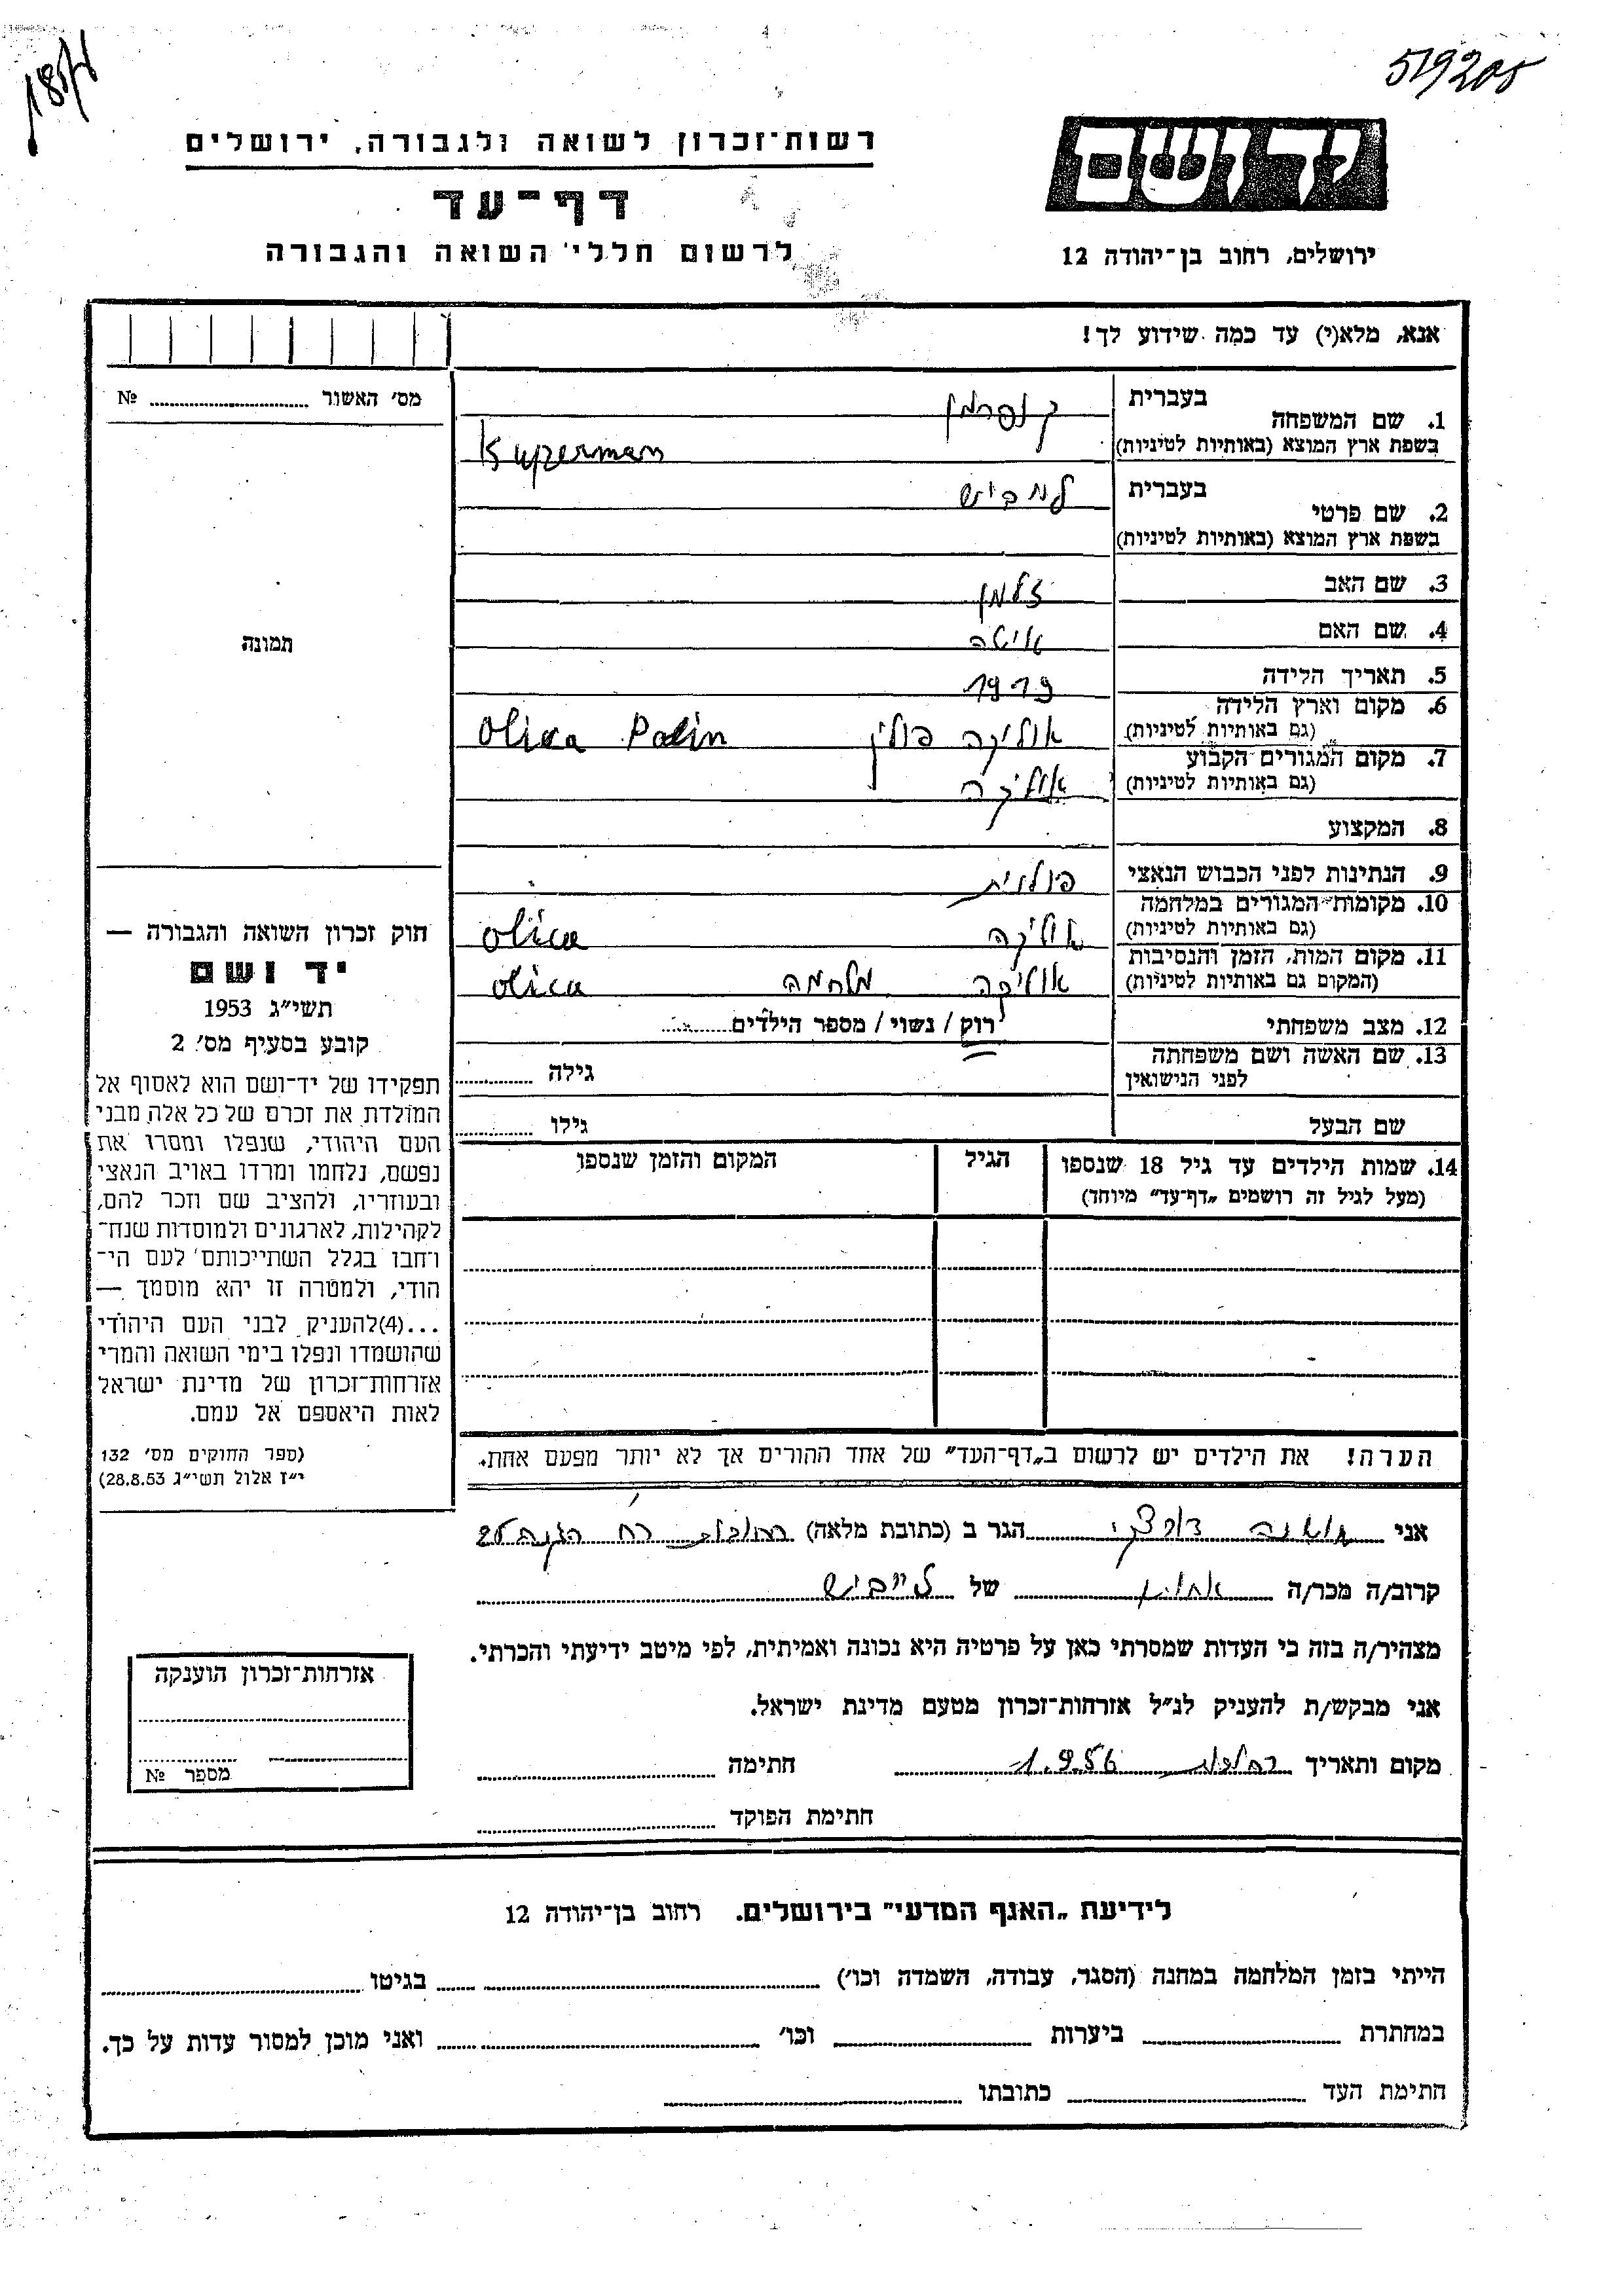 519205
רשות־זכרון לשואה ולגבורה, ירושלים
יד ושם
דף־עד
לרשום חללי השואה והגבורה
ירושלים, רחוב בן־יהודה 12
אנא, מלא(י) עד כמה שידוע לך!
מס׳ האשור № 
1. שם המשפחה
בעברית קופרמן
בשפת ארץ המוצא (באותיות לטיניות) Kuperman
2. שם פרטי
בעברית
בשפת ארץ המוצא (באותיות לטיניות)
3. שם האב זלמן
4. שם האם איטה
5. תאריך הלידה 1919
6. מקום וארץ הלידה (גם באותיות לטיניות) אוליקה פולין Olica Polin
7. מקום המגורים הקבוע (גם באותיות לטיניות) אוליקה
8. המקצוע
9. הנתינות לפני הכבוש הנאצי פולנית
10. מקומות־המגורים במלחמה (גם באותיות לטיניות) אוליקה olica
11. מקום המות, הזמן והנסיבות (המקום גם באותיות לטיניות) אוליקה מלחמה olica
12. מצב משפחתי רוק / נשוי / מספר הילדים
13. שם האשה ושם משפחתה לפני הנישואין גילה
שם הבעל גילו
14. שמות הילדים עד גיל 18 שנספו
(מעל לגיל זה רושמים „דף־עד” מיוחד)
הגיל
המקום והזמן שנספו
הערה! את הילדים יש לרשום ב„דף־העד” של אחד ההורים אך לא יותר מפעם אחת.
תמונה
חוק זכרון השואה והגבורה —
יד ושם
תשי״ג 1953
קובע בסעיף מס׳ 2
תפקידו של יד־ושם הוא לאסוף אל
המולדת את זכרם של כל אלה מבני
העם היהודי, שנפלו ומסרו את
נפשם, נלחמו ומרדו באויב הנאצי
ובעוזריו, ולהציב שם וזכר להם,
לקהילות, לארגונים ולמוסדות שנח־
רבו בגלל השתייכותם לעם הי־
הודי, ולמטרה זו יהא מוסמך —
...(4)להעניק לבני העם היהודי
שהושמדו ונפלו בימי השואה והמרי
אזרחות־זכרון של מדינת ישראל
לאות היאספם אל עמם.
(ספר החוקים מס׳ 132
י״ז אלול תשי״ג 28.8.53)
אני הגר ב (כתובת מלאה) רחובות רח
קרוב/ה מכר/ה של לייביש
מצהיר/ה בזה כי העדות שמסרתי כאן על פרטיה היא נכונה ואמיתית, לפי מיטב ידיעתי והכרתי.
אני מבקש/ת להעניק לנ״ל אזרחות־זכרון מטעם מדינת ישראל.
מקום ותאריך רחובות 1.9.56 חתימה
חתימת הפוקד
אזרחות־זכרון הוענקה
מספר №
לידיעת „האגף המדעי” בירושלים. רחוב בן־יהודה 12
הייתי בזמן המלחמה במחנה (הסגר, עבודה, השמדה וכו׳) בגיטו
במחתרת ביערות וכו׳ ואני מוכן למסור עדות על כך.
חתימת העד כתובתו